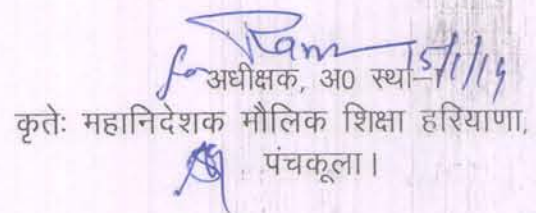 Ram 15/1/14
for अधीक्षक, अ0 स्था–1
कृतेः महानिदेशक मौलिक शिक्षा हरियाणा,
पंचकूला।